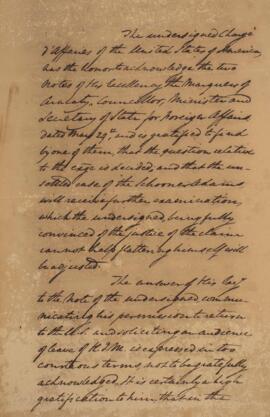 The undersigned Chargé
d'Affaires of the United States of America,
has the honor to acknowledge the two
Notes of His Excellency the Marquess of
Aracaty, Councillor, Minister and
Secretary of State for Foreign Affairs
dated May 29, and is gratified to find
by one of them, that the question relative
to the is decided, and that the un-
settled case of the Schooner Adams
will receive further examination,
which the undersigned, being fully
convinced of the justice of the claim
cannot help flattering himself will
be adjusted.
The answer of His Exy
to the Note of the undersigned commu-
nicating his permission to return
to the U.S. and soliciting an audience
of leave of H.I.M. is expressed in too
courteous terms, not to be gratefully
acknowledged. It is certainly a high
gratification to him, that in the